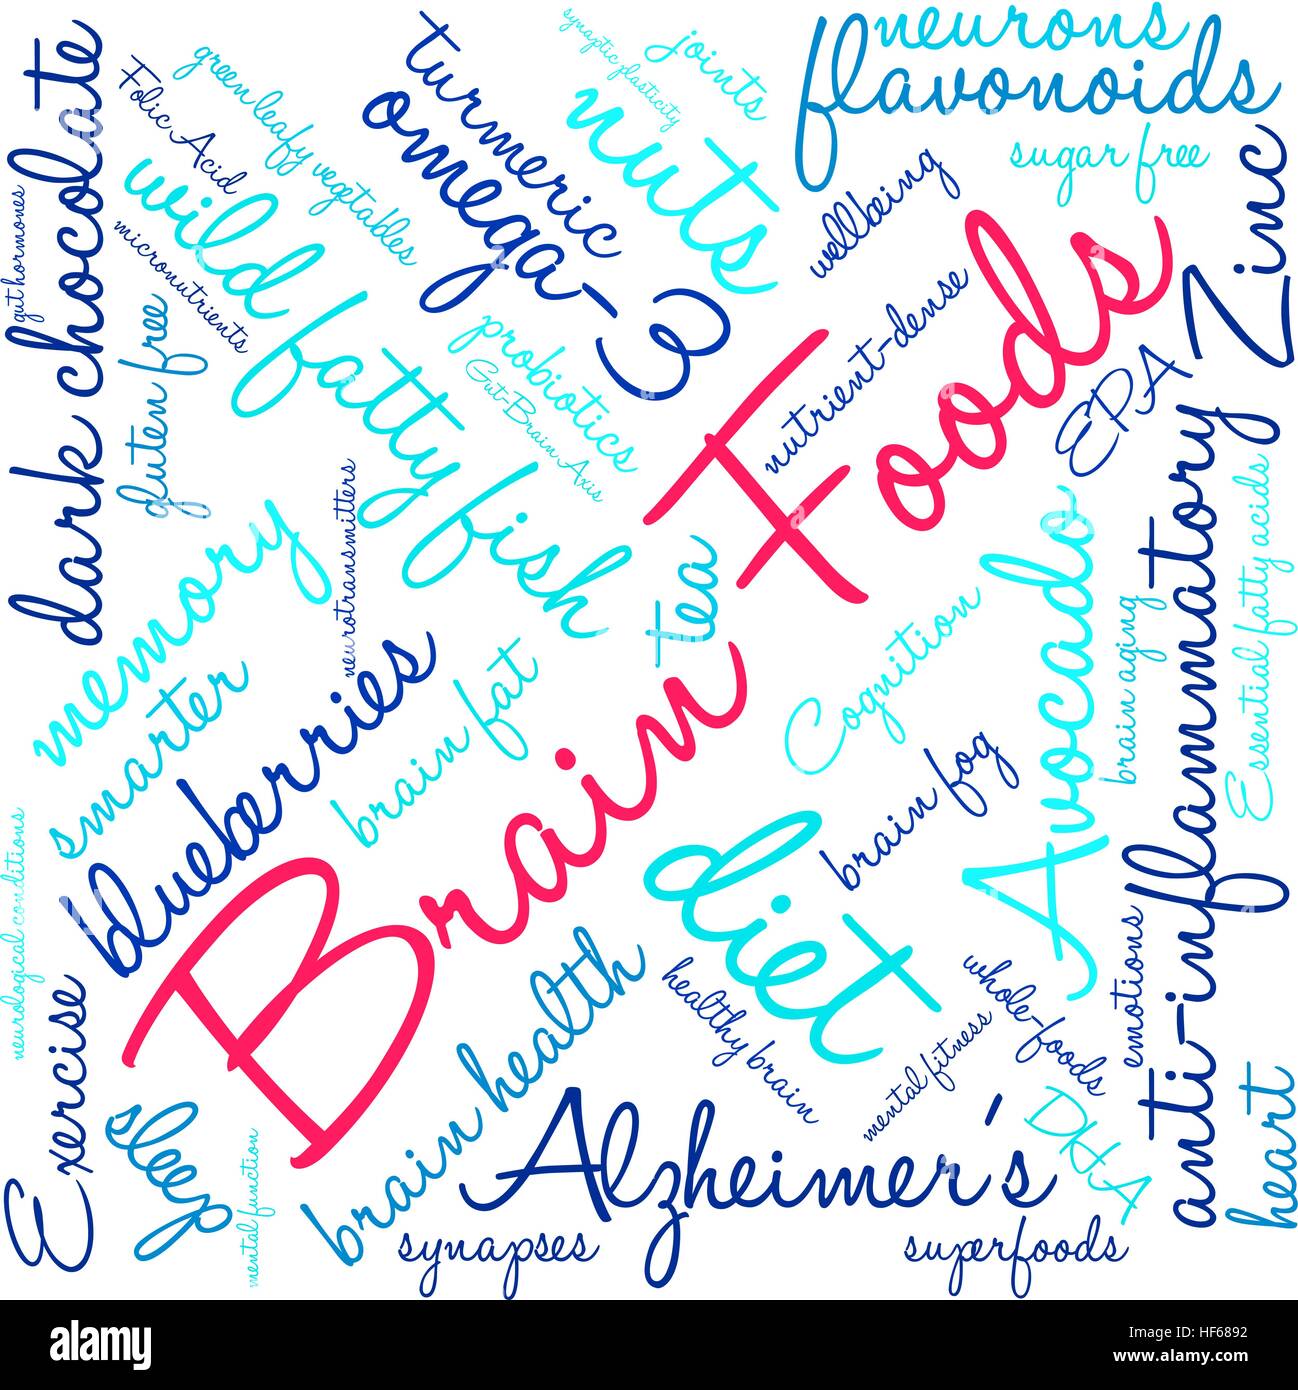 neurons
flavonoids
sugar free
synaptic plasticity
joints
nuts
turmeric
omega-3
green leafy vegetables
Folic Acid
wild fatty fish
micronutrients
gut hormones
dark chocolate
gluten free
probiotics
Gut-Brain Axis
wellbeing
nutrient-dense
Zinc
EPA
Brain Foods
tea
neurotransmitters
memory
smarter
blueberries
brain fat
Cognition
Avocado
brain aging
anti-inflammatory
Essential fatty acids
brain fog
diet
neurological conditions
Exercise
sleep
mental function
brain health
healthy brain
mental fitness
whole-foods
emotions
DHA
heart
Alzheimer's
synapses
superfoods
alamy stock photo
HF6892
www.alamy.com